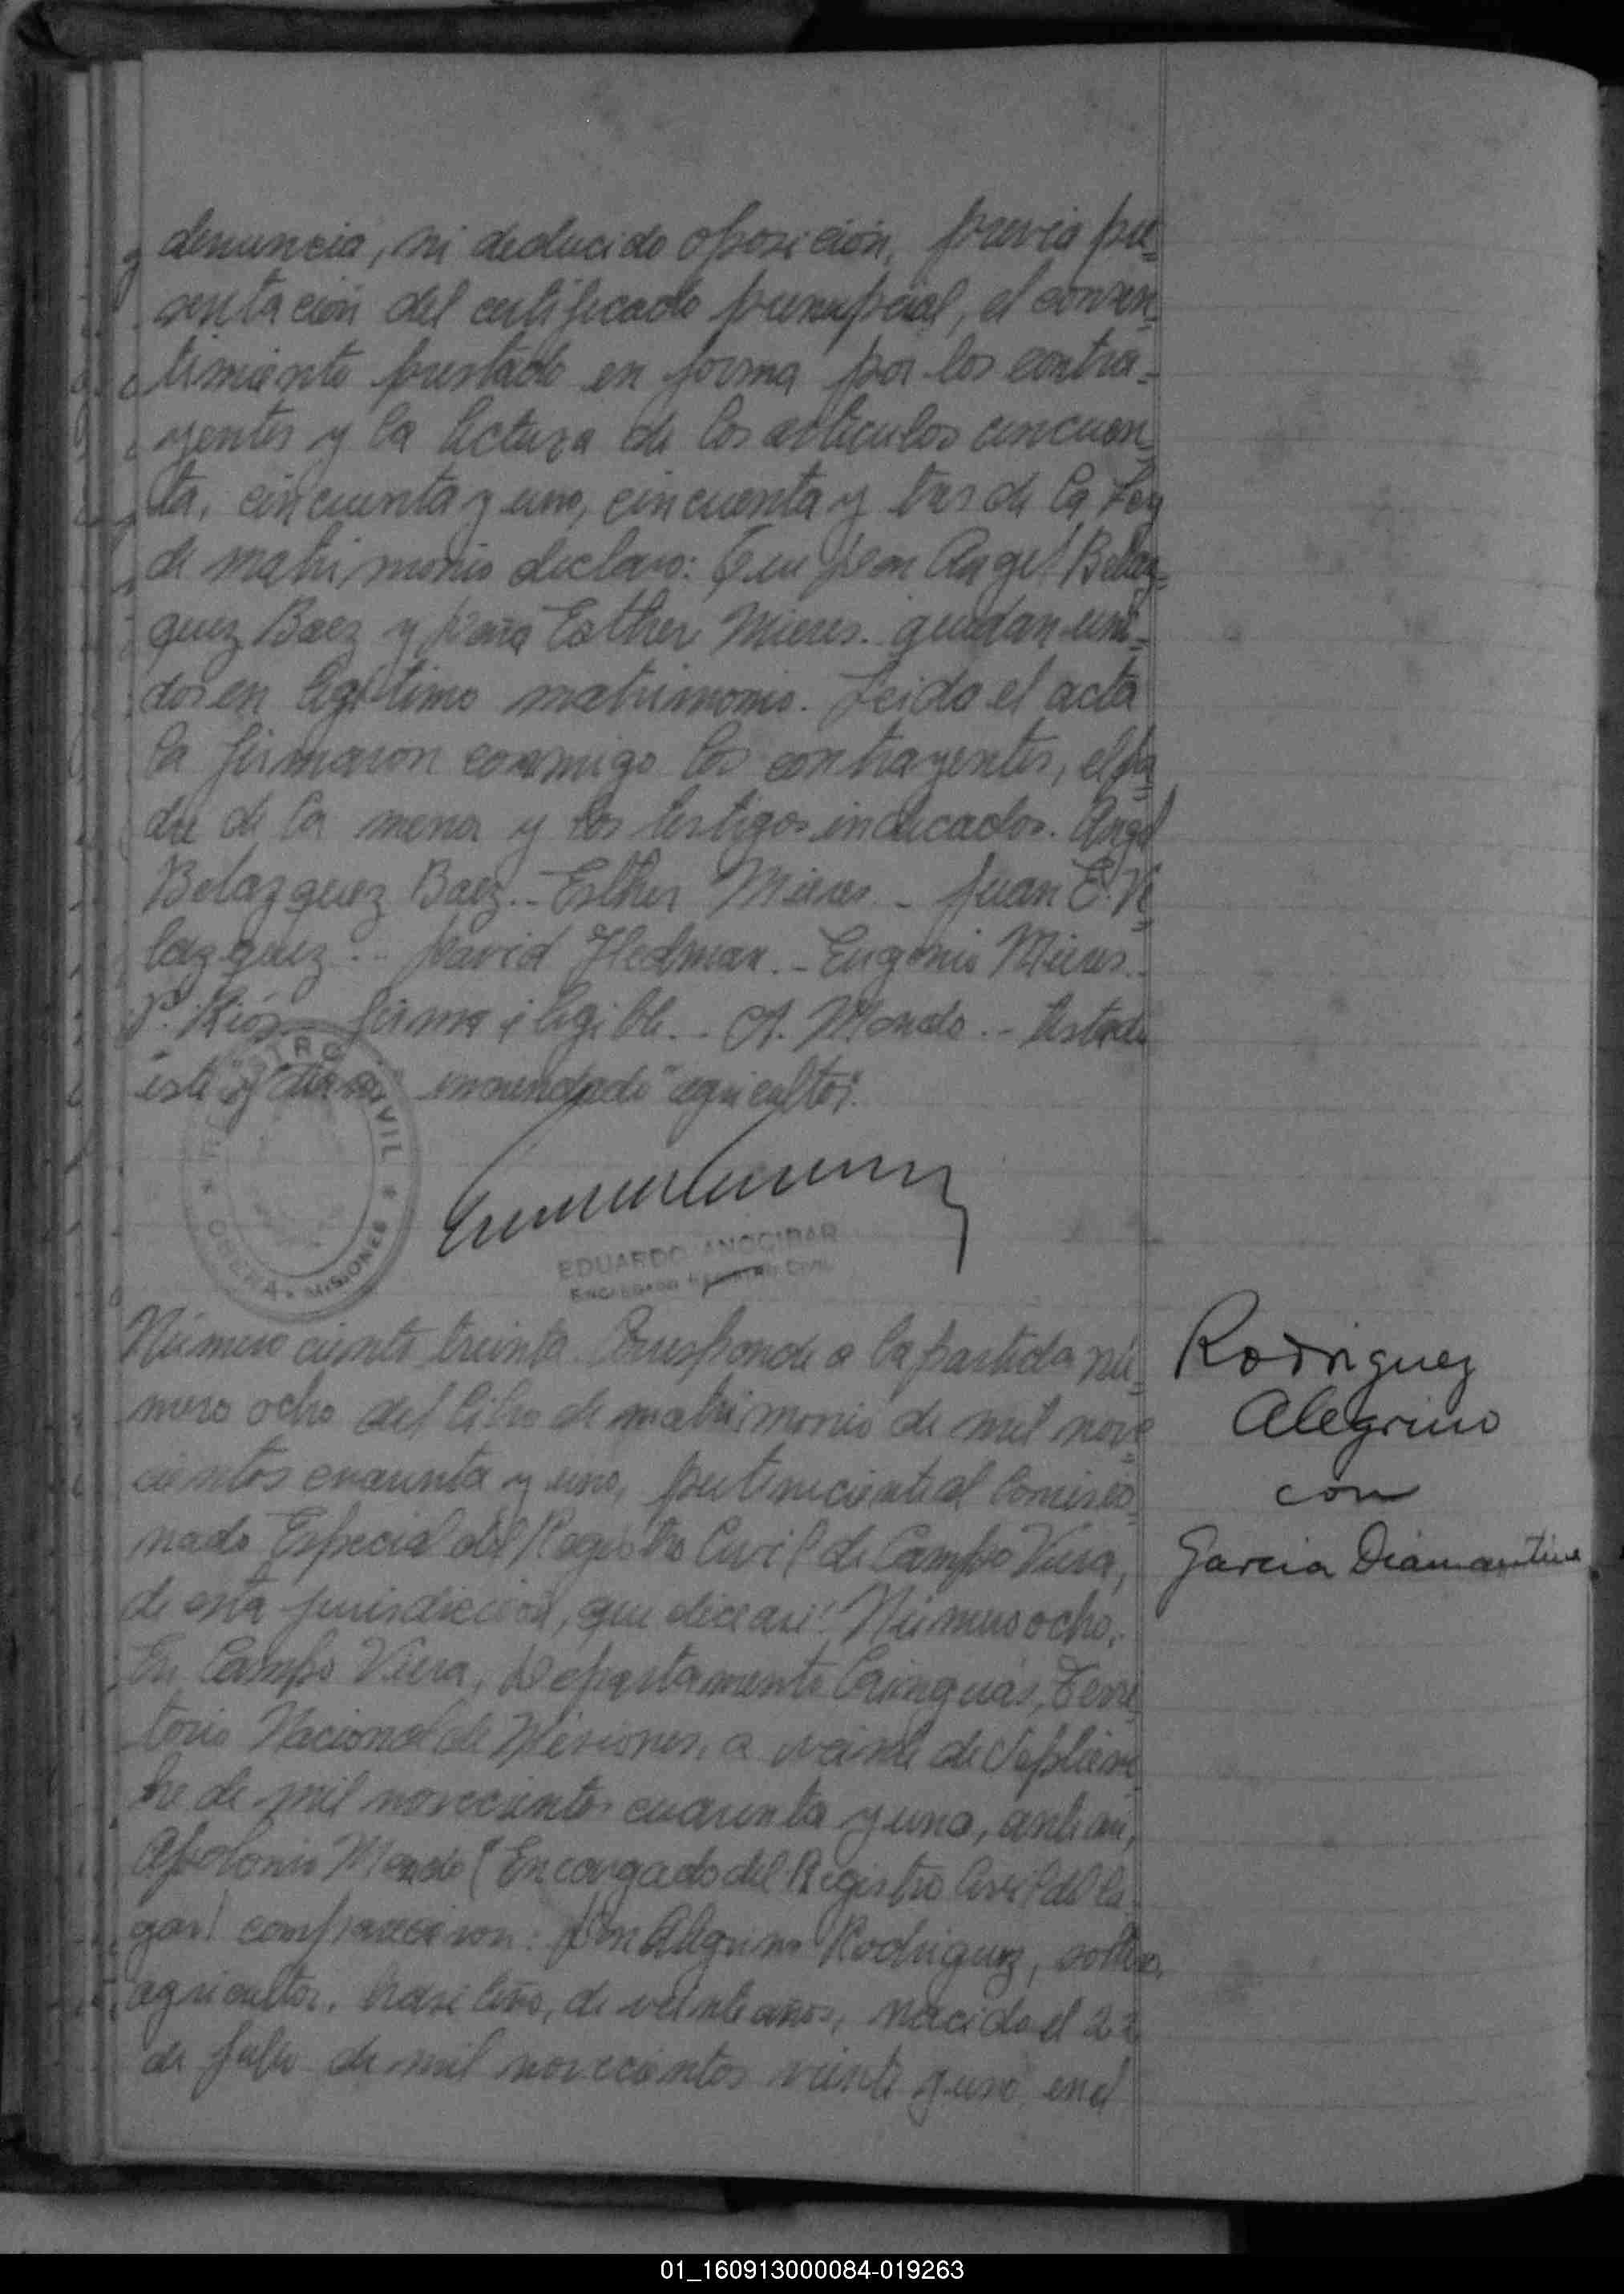 denuncia, ni deducido oposición, previa pre=
sentación del certificado prenupcial, el consen=
timiento prestado en forma por los contra=
yentes y la lectura de los artículos cincuen=
ta, cincuenta y uno, cincuenta y tres de la Ley
de matrimonio declaro: Que Don Angel Belaz=
quez Baez y Doña Esther Mieres. quedan uni=
dos en legítimo matrimonio. Leida el acta
la firmaron conmigo los contrayentes, el pa=
dre de la menor y los testigos indicados. Angel
Belazquez Baez.- Esther Mieres - Juan E. Ve=
lazquez.- David Hedman.- Eugenio Mieres.-
P. Ríos - firma ilegible.- A. Mondo.- Testado
este y enmendado "agricultor".
REGISTRO CIVIL
OBERA - MISIONES
EDUARDO ANOCIBAR
ENCARGADO REGISTRO CIVIL
Número ciento treinta. Corresponde a la partida nú=
mero ocho del libro de matrimonio de mil nove=
cientos cuarenta y uno, perteneciente al Comisio=
nado Especial del Registro Civil de Campo Viera,
de esta jurisdicción, que dice asi: Número ocho.
En Campo Viera, Departamento Cainguás, Terri=
torio Nacional de Misiones, a veinte de Septiem=
bre de mil novecientos cuarenta y uno, ante mi,
Apolonio Mondo (Encargado del Registro Civil del lu=
gar) comparecieron: Don Alegrino Rodriguez, soltero,
agricultor, brasileño, de veinte años, nacido el 22
de Julio de mil novecientos veinte y uno en el
Rodriguez
Alegrino
con
Garcia Diamantina
01_160913000084-019263